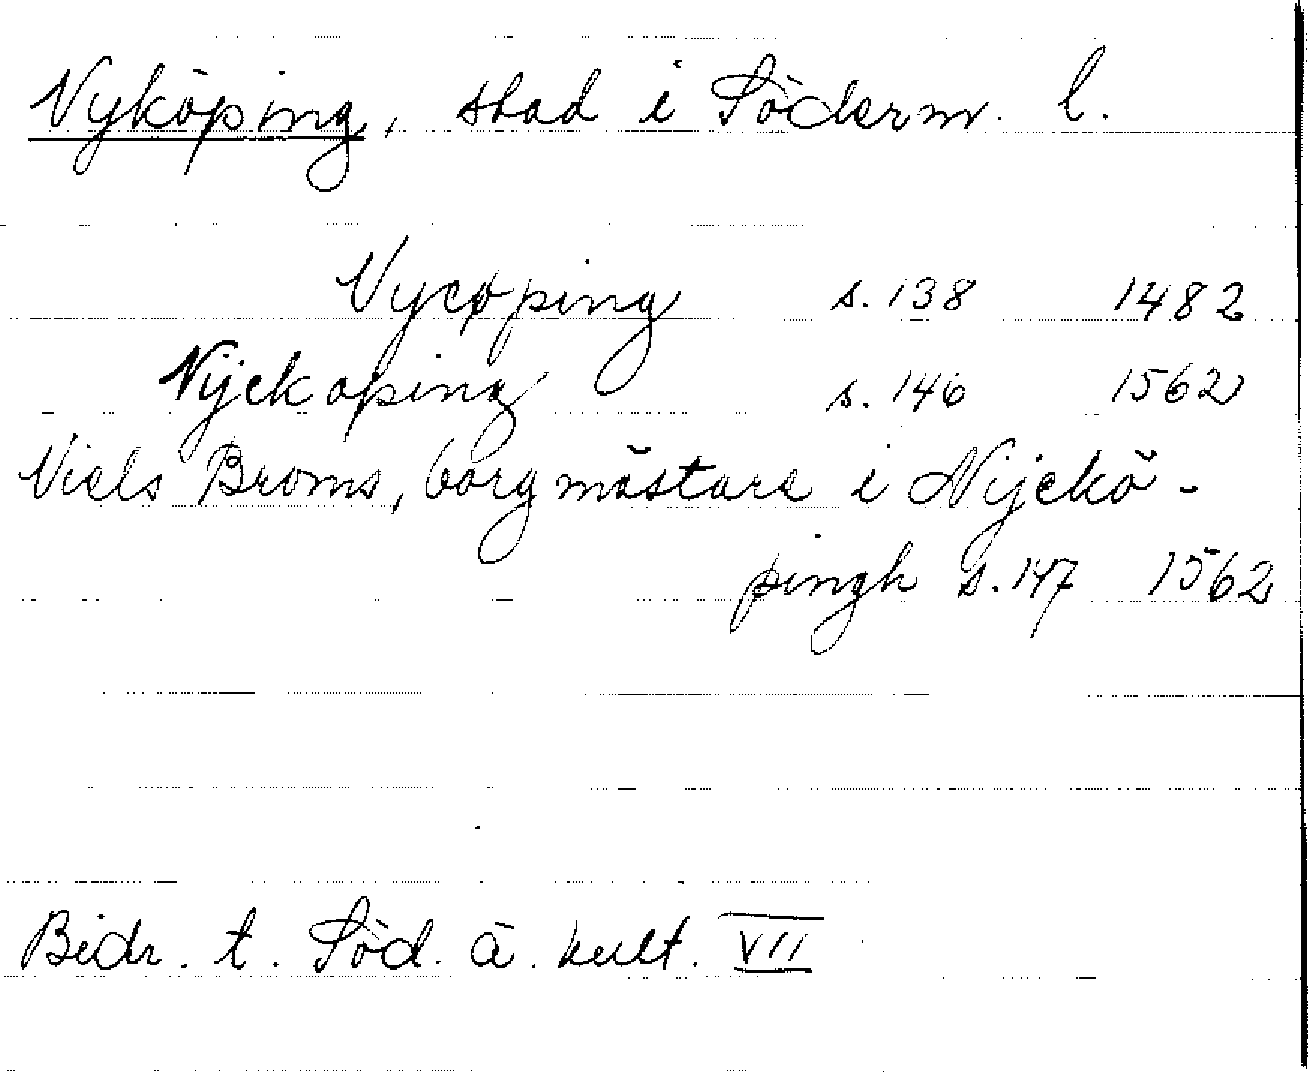 Nyköping, stad i Söderm. l.
Nycøping s. 138 1482
Nijekoping s. 146 1562
Niels Broms, borgmästare i Nijekö-
pingh s. 147 1562
Bidr. t. Söd. ä. kult. VII